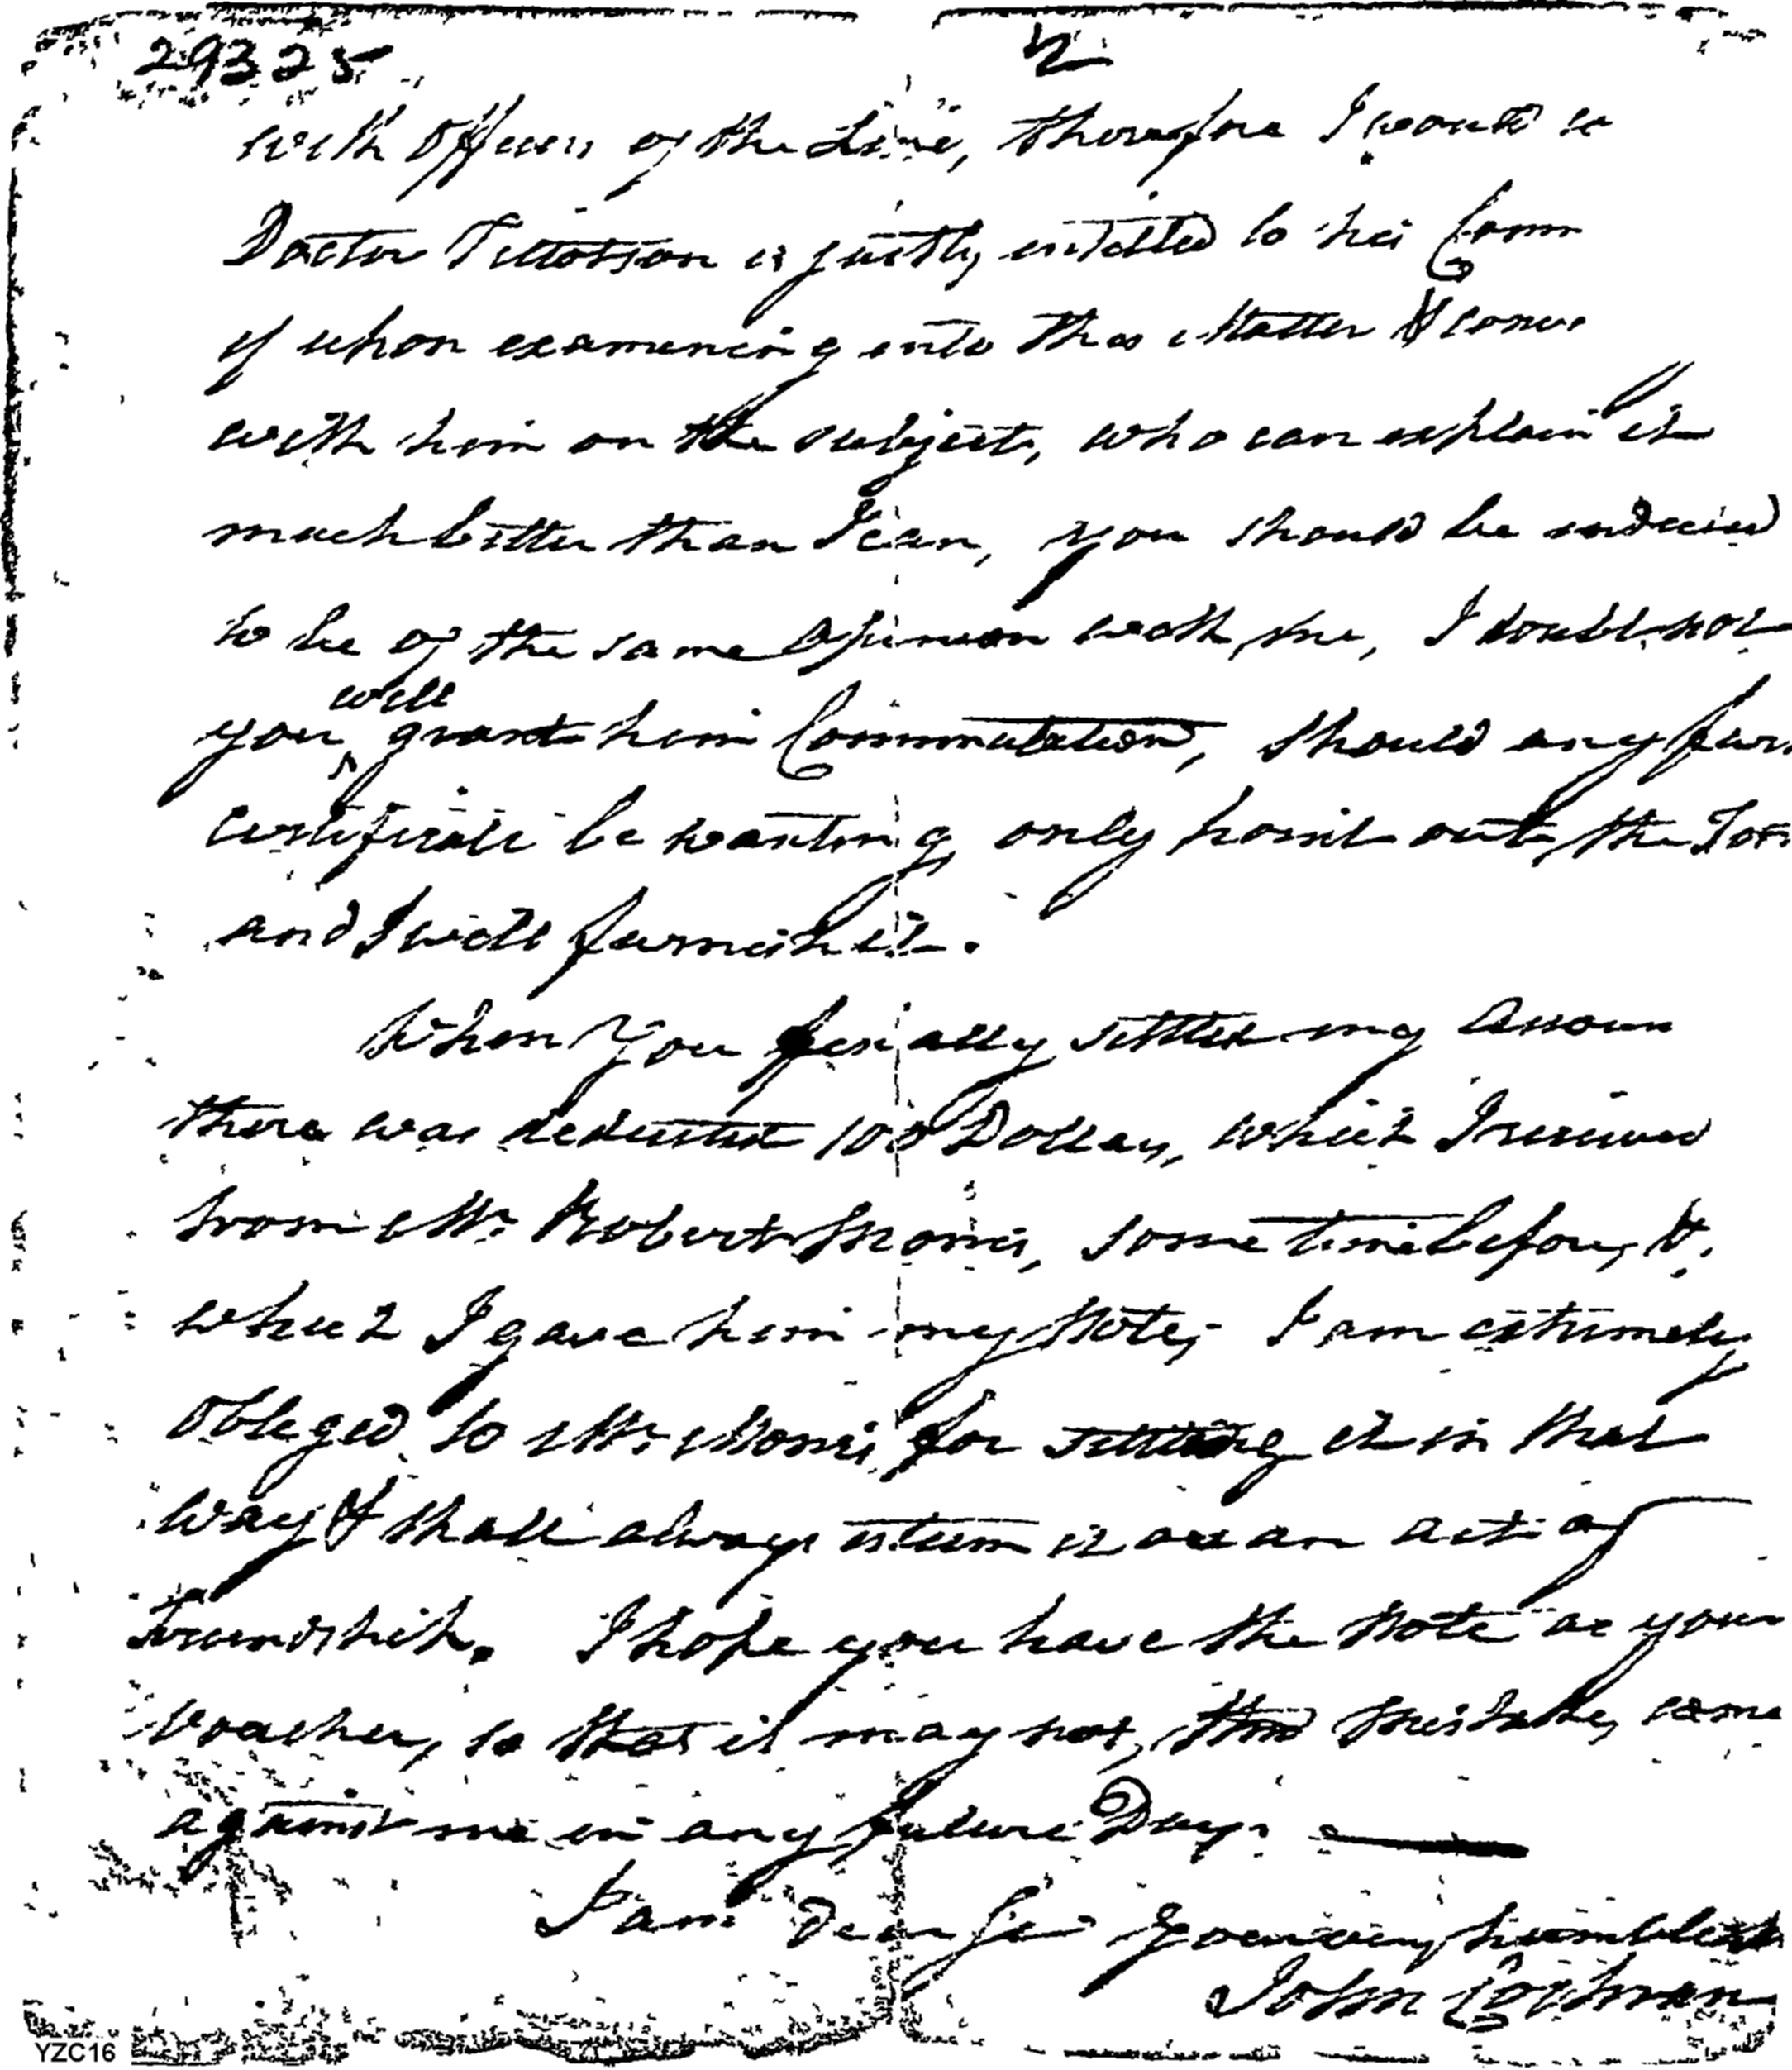 29325
2
with Officers of the Line, therefore I would
Doctor Tillotson is justly entitled to his Comm
if upon examining into this Matter &
with him on the subject, who can explain it
much better than I can, you should be induced
to be of the same Opinion with me, I doubt not
will
you grant him Commutation, should any fur
certificate be wanting only point out the
and I will furnish it.
When You finally settled my Accoun
there was deducted 100 Dollars, which I received
from Mr. Robert Morris, some time before, &
which I gave him my Note; I am extremely
obliged to Mr. Morris for settling it in that
way & shall always esteem it as an act of
Friendship. I hope you have the Note as your
Voucher, so that it may not, thro mistake, come
against me in any future Day.
I am Dear Sir Your very humble
John Cochran
YZC16